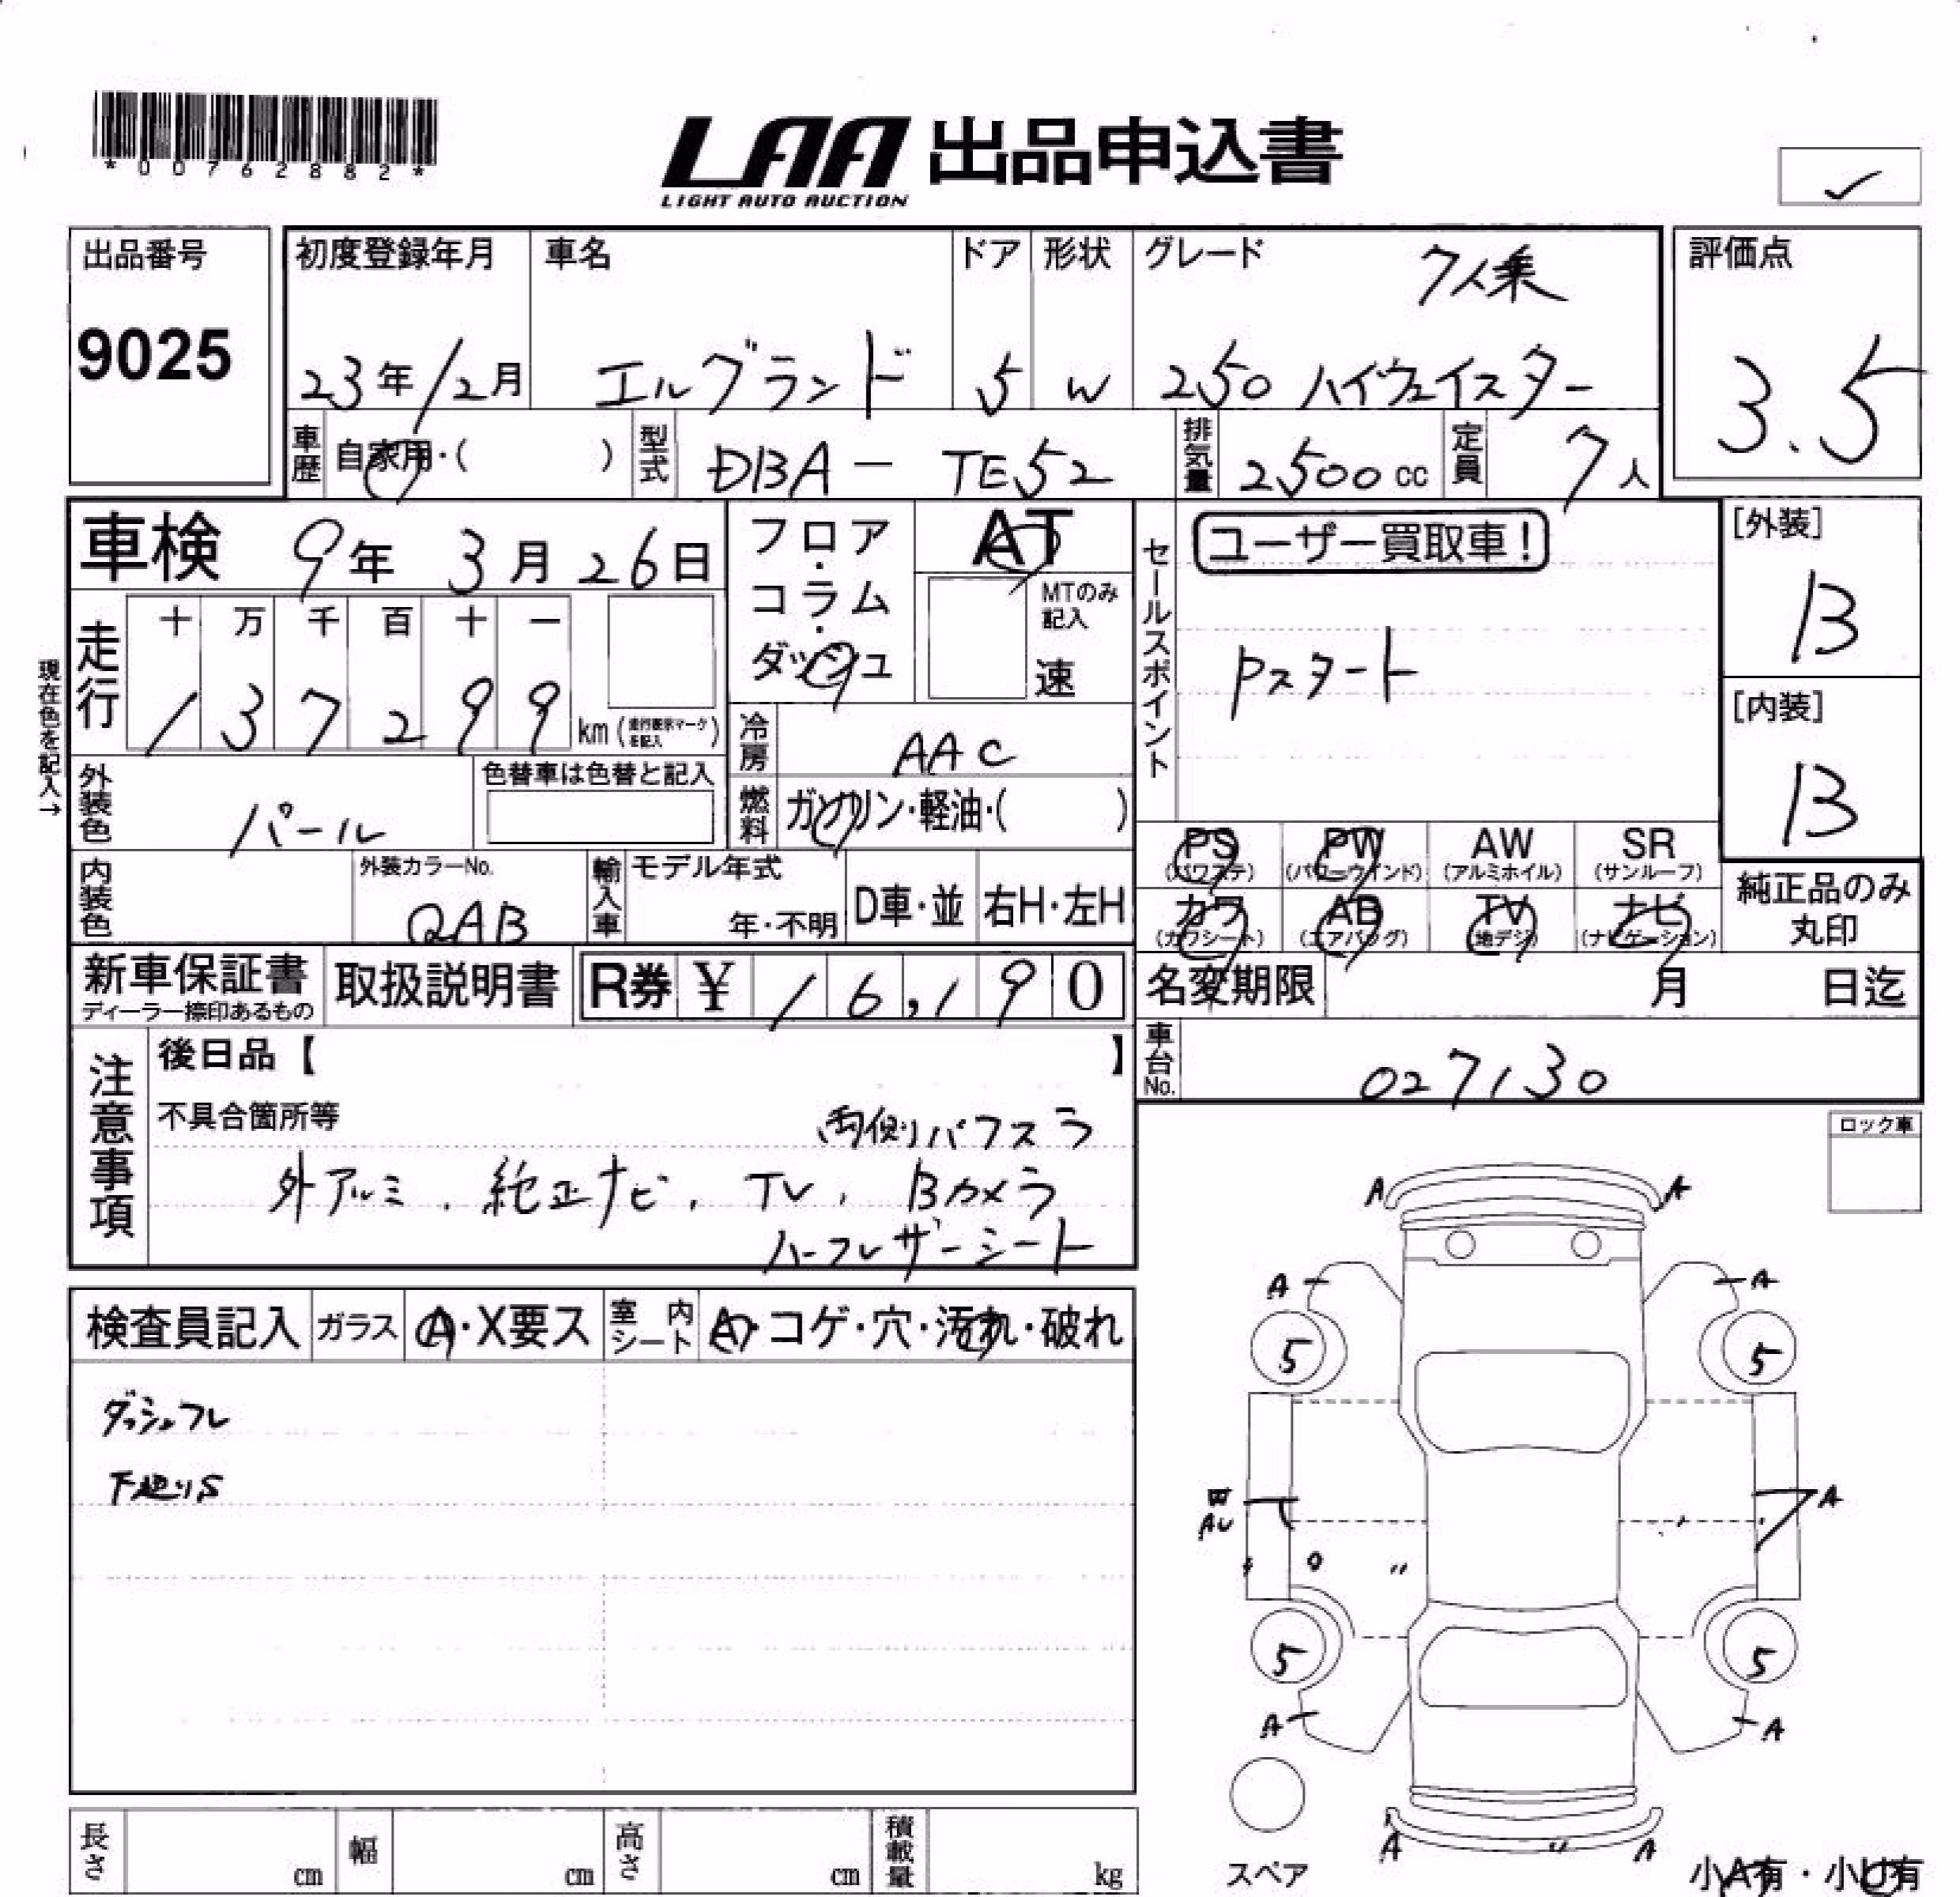 *00762882*
LAA 出品申込書
LIGHT AUTO AUCTION
✓
出品番号
9025
初度登録年月
23年12月
車名
エルグランド
ドア
5
形状
W
グレード
7人乗
250 ハイウェイスター
評価点
3.5
車歴
自家用・( )
型式
DBA - TE52
排気量
2500cc
定員
7人
車検 9年 3月 26日
フロア・コラム・ダッシュ
AT
MTのみ記入
速
セールスポイント
ユーザー買取車!
Pスタート
[外装]
B
[内装]
B
現在色を記入→
走行
十 万 千 百 十 一
1 3 7 2 9 9 km (走行表示マークを記入)
冷房
AAC
外装色
パール
色替車は色替と記入
燃料
ガソリン・軽油・( )
PS (パワステ)
PW (パワーウインド)
AW (アルミホイル)
SR (サンルーフ)
カワ (カワシート)
AB (エアバッグ)
TV (地デジ)
ナビ (ナビゲーション)
純正品のみ丸印
内装色
外装カラーNo.
QAB
輸入車
モデル年式
年・不明
D車・並
右H・左H
新車保証書
ディーラー捺印あるもの
取扱説明書
R券 ¥ 16,190
名変期限 月 日迄
車台No.
027130
注意事項
後日品【 】
不具合箇所等
両側パワスラ
外アルミ、純正ナビ、TV、Bカメラ
ハーフレザーシート
ロック車
検査員記入
ガラス
A・X要ス
室内シート
A・コゲ・穴・汚れ・破れ
ダッシュフレ
下廻りS
A A
A A
5 5
A
AU
〃
5 5
A A
A 〃 A
スペア
小A有・小U有
長さ cm
幅 cm
高さ cm
積載量 kg